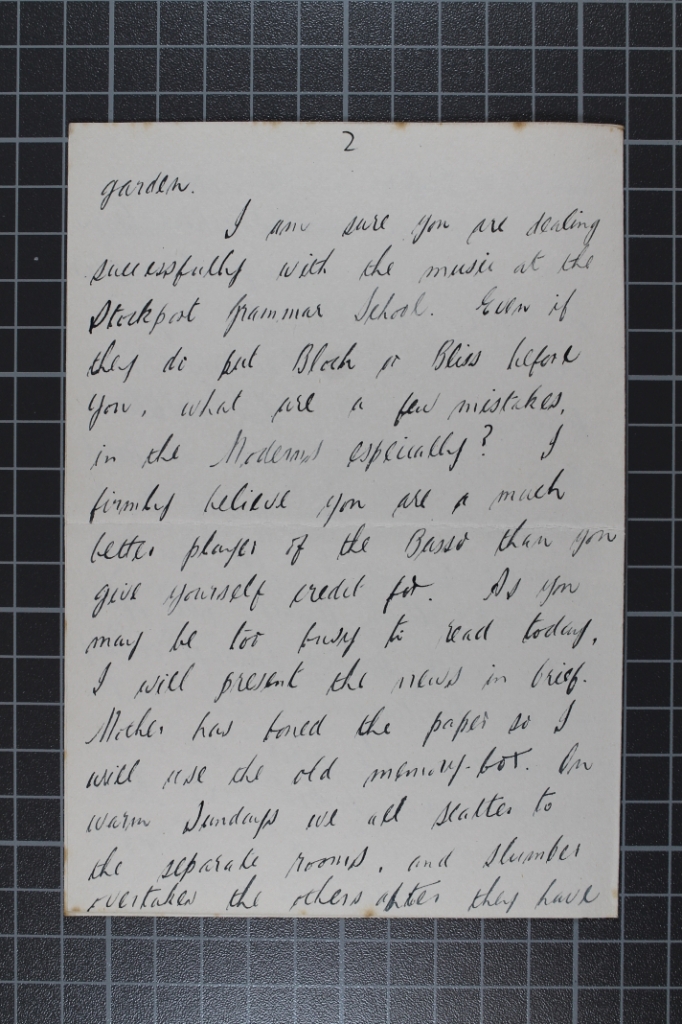 2
garden.
I am sure you are dealing
successfully with the music at the
Stockport Grammar School. Even if
they do put Bloch or Bliss before
you, what are a few mistakes,
in the Moderns especially? I
firmly believe you are a much
better player of the Basso than you
give yourself credit for. As you
may be too busy to read today,
I will present the news in brief.
Mother has boned the paper so I
will use the old memory-box. On
warm Sundays we all scatter to
the separate rooms, and slumber
overtakes the others after they have